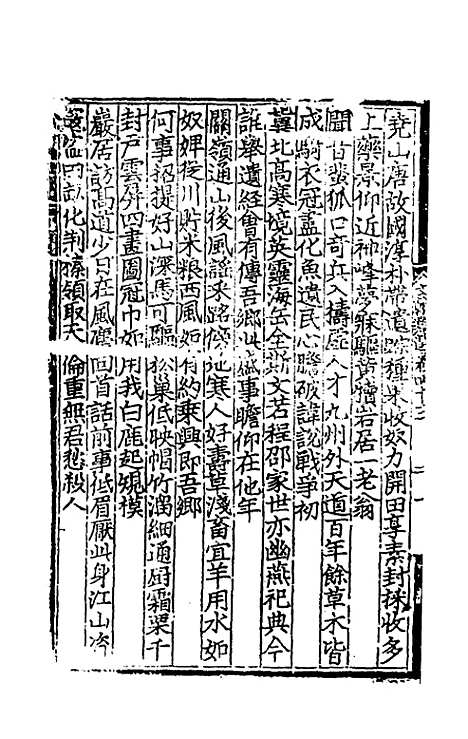 堯山唐故國淳朴帶遺蹤種果收奴力開田尊素封採收多
上藥景仰近神峰夢寐驅黃犢岩居一老翁
聞昔蚩狐口奇兵入擣虛人才九州外天道百年餘草木皆
成衣冠盡化魚遺民心膽破諱說戰爭初
冀北高寒境英靈海岳全斯文若程邵家世亦幽燕祀典今
誰舉遺經會有傳吾鄉此事瞻仰在他年
關嶺通山後風謠采路傍地寒人好壽草淺畜宜羊用水如
奴婢從川貯米粮西風如有約乘興即吾鄉
何事招提好山深馬可驅松巢低映帽竹溜細通厨霜栗千
封戸雲屏四畫圖冠巾如用我白鹿起規模
巖居訪高道少日在風塵回首話前事低眉厭此身江山冷
化判領取大倫重無君愁殺人